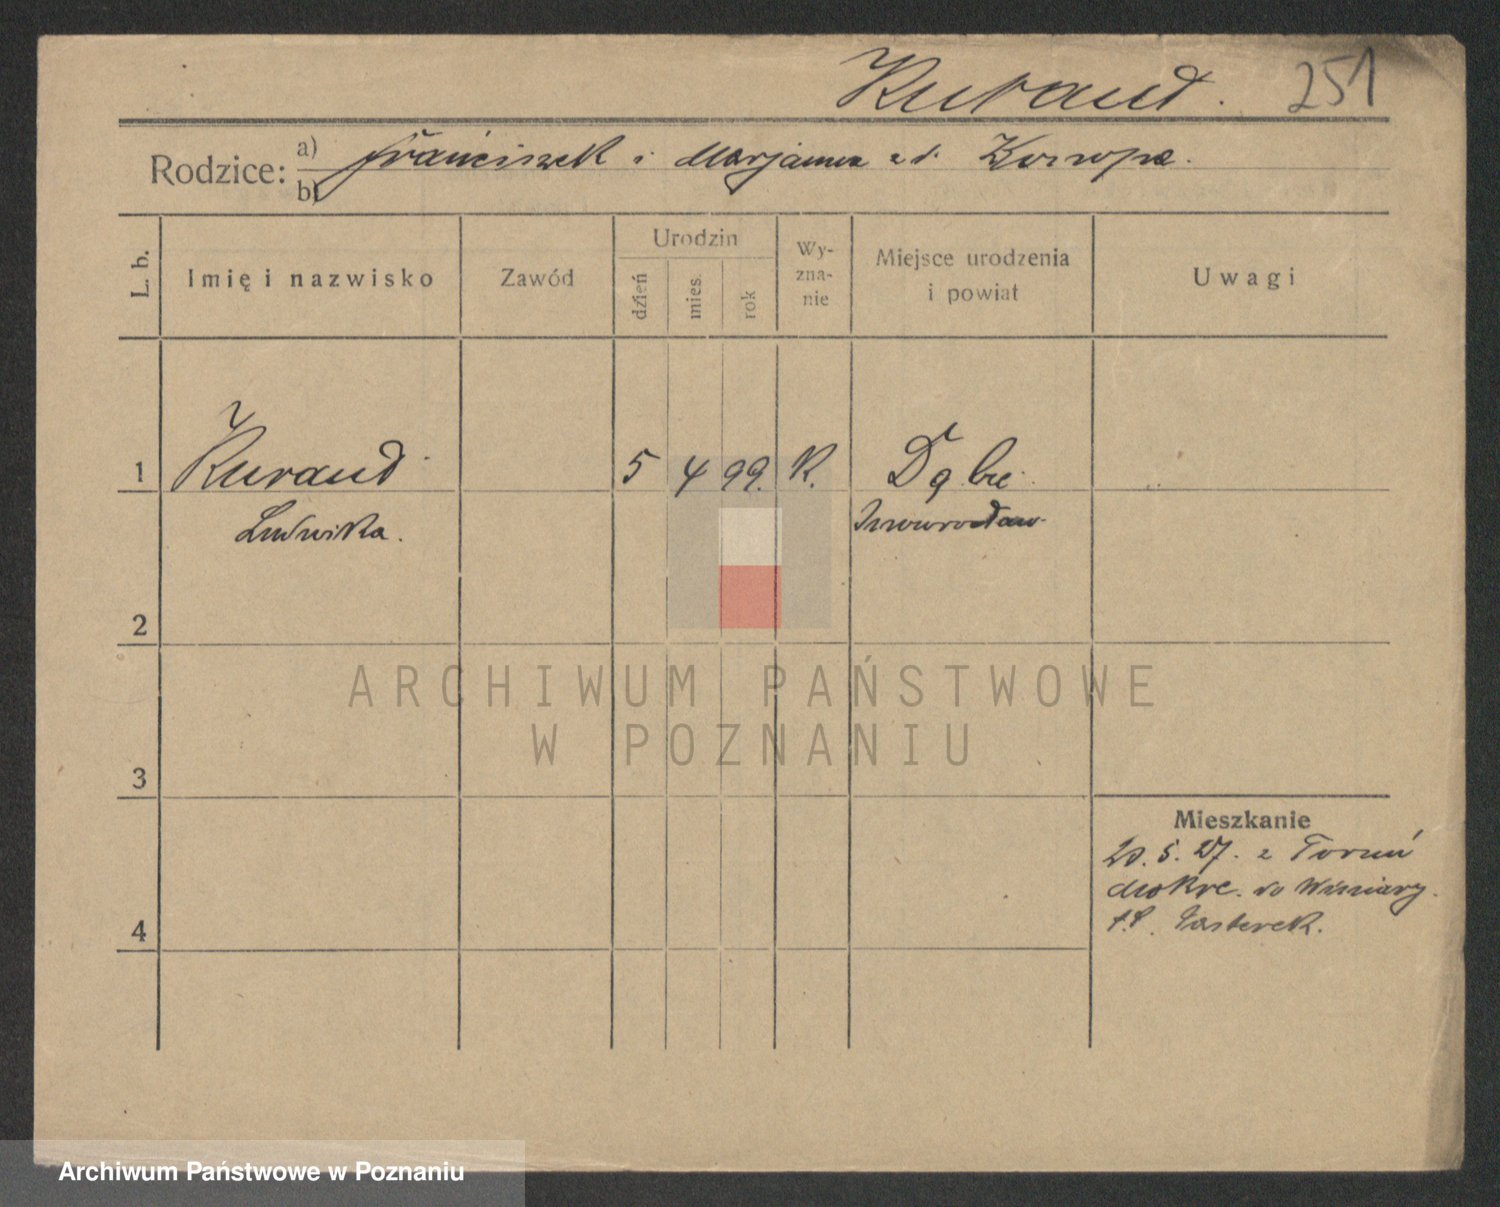 Kurand. 251
Rodzice: a) Franciszek i Marjanna z d. Konopa.
b)
L. b.
Imię i nazwisko
Zawód
Urodzin
dzień
mies.
rok
Wy-
zna-
nie
Miejsce urodzenia
i powiat
Uwagi
1 Kurand 5 4 99. K. Dąbie
Ludwika. Inowrocław
2
3
4
Mieszkanie
20. 5. 27. z Toruń
Mokre. do Winiary.
ARCHIWUM PAŃSTWOWE
W POZNANIU
Archiwum Państwowe w Poznaniu